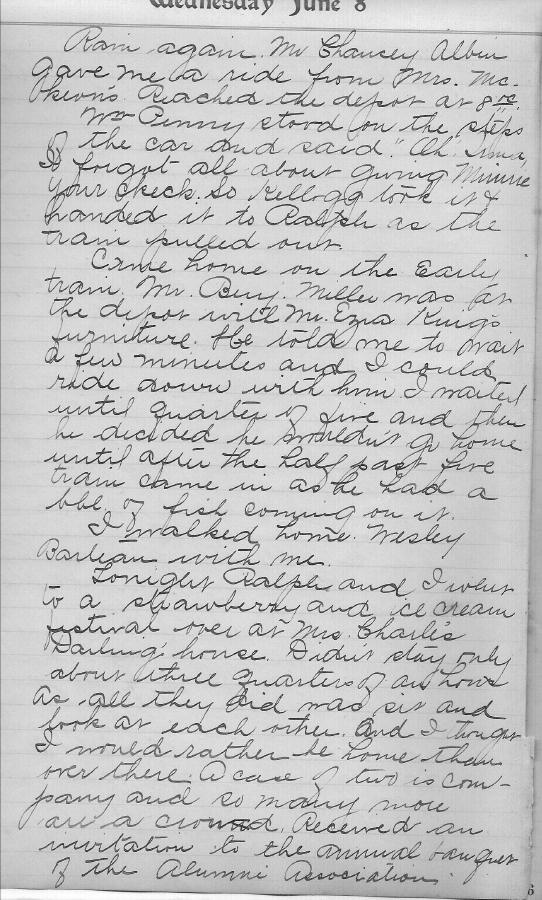 Wednesday June 8
Rain again. Mr Chancey Albin
gave me a ride from Mrs. Mc-
Keon's. Reached the depot at 8 oc.
Wm Penny stood on the steps
of the car and said "Oh
I forgot all about giving Minnie
your check. So Kellogg took it &
handed it to Ralph as the
train pulled out.
Came home on the Early
train. Mr. Benj. Miller was at
the depot with Mr. Ezra King's
furniture. He told me to wait
a few minutes and I could
ride down with him I waited
until quarter of five and then
he decided he wouldn't go home
until after the half past five
train came in as he had a
bbl of fish coming on it.
I walked home. Wesley
with me.
Tonight Ralph and I went
to a strawberry and ice cream
festival over at Mrs. Charlie's
Darling house. Didn't stay only
about three quarters of an hour
As all they did was sit and
look at each other. And I thought
I would rather be home than
over there. A case of two is com-
pany and so many more
are a crowd. Received an
invitation to the annual banquet
of the Alumni Association.
6